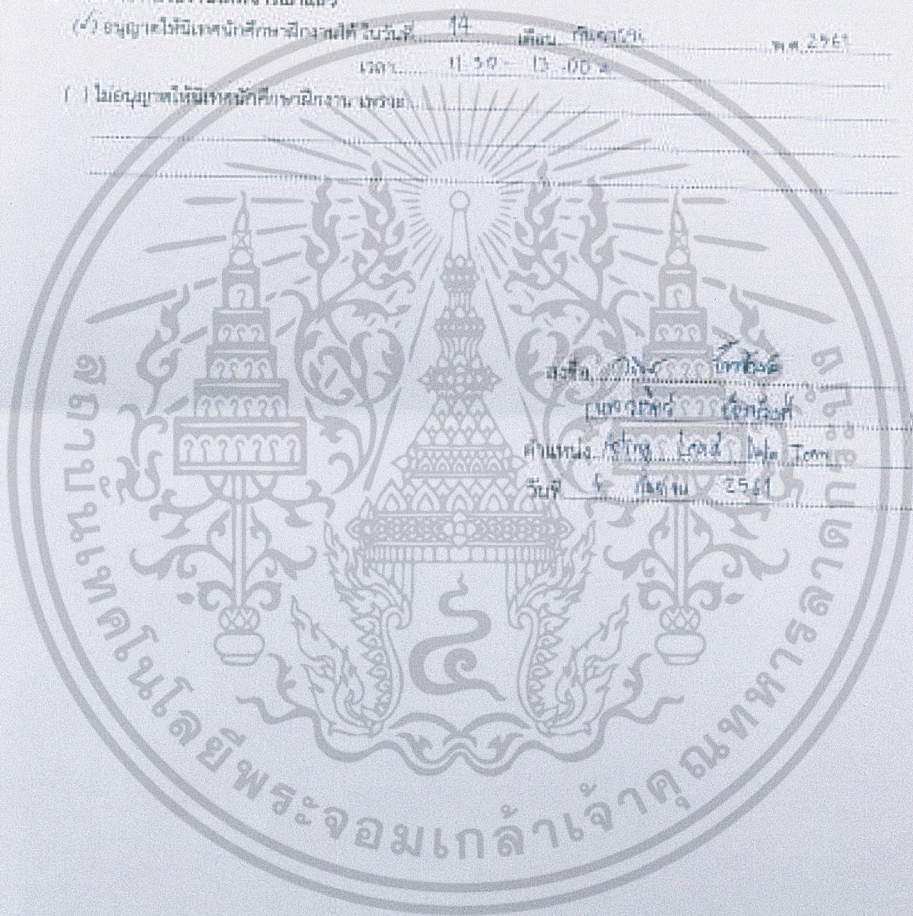 (✓) อนุญาตให้นิเทศนักศึกษาฝึกงานได้ ในวันที่ 14 เดือน กันยายน พ.ศ. 2561
เวลา 11.30 - 13.00 น
( ) ไม่อนุญาตให้นิเทศนักศึกษาฝึกงาน เพราะ
ลงชื่อ
ตำแหน่ง Acting Lead Data Team
วันที่ 4 กันยายน 2561
สถาบันเทคโนโลยีพระจอมเกล้าเจ้าคุณทหารลาดกระบัง